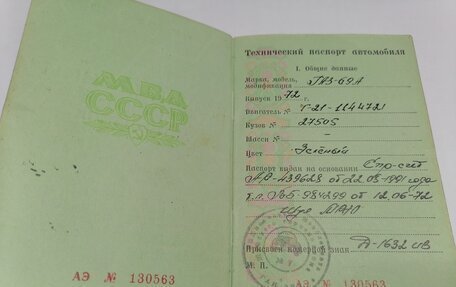 МВД
СССР
АЭ № 130563
Технический паспорт автомобиля
I. Общие данные
Марка, модель,
модификация ГАЗ-69А
Выпуск 1972 г.
Двигатель № 21-114472
Кузов № 27505
Шасси № —
Цвет Зелёный
Паспорт выдан на основании
от 22.08.1991 года
984299 от 12.06-72
Присвоен номерной знак Д-1632 ИВ
М. П.
АЭ № 130563